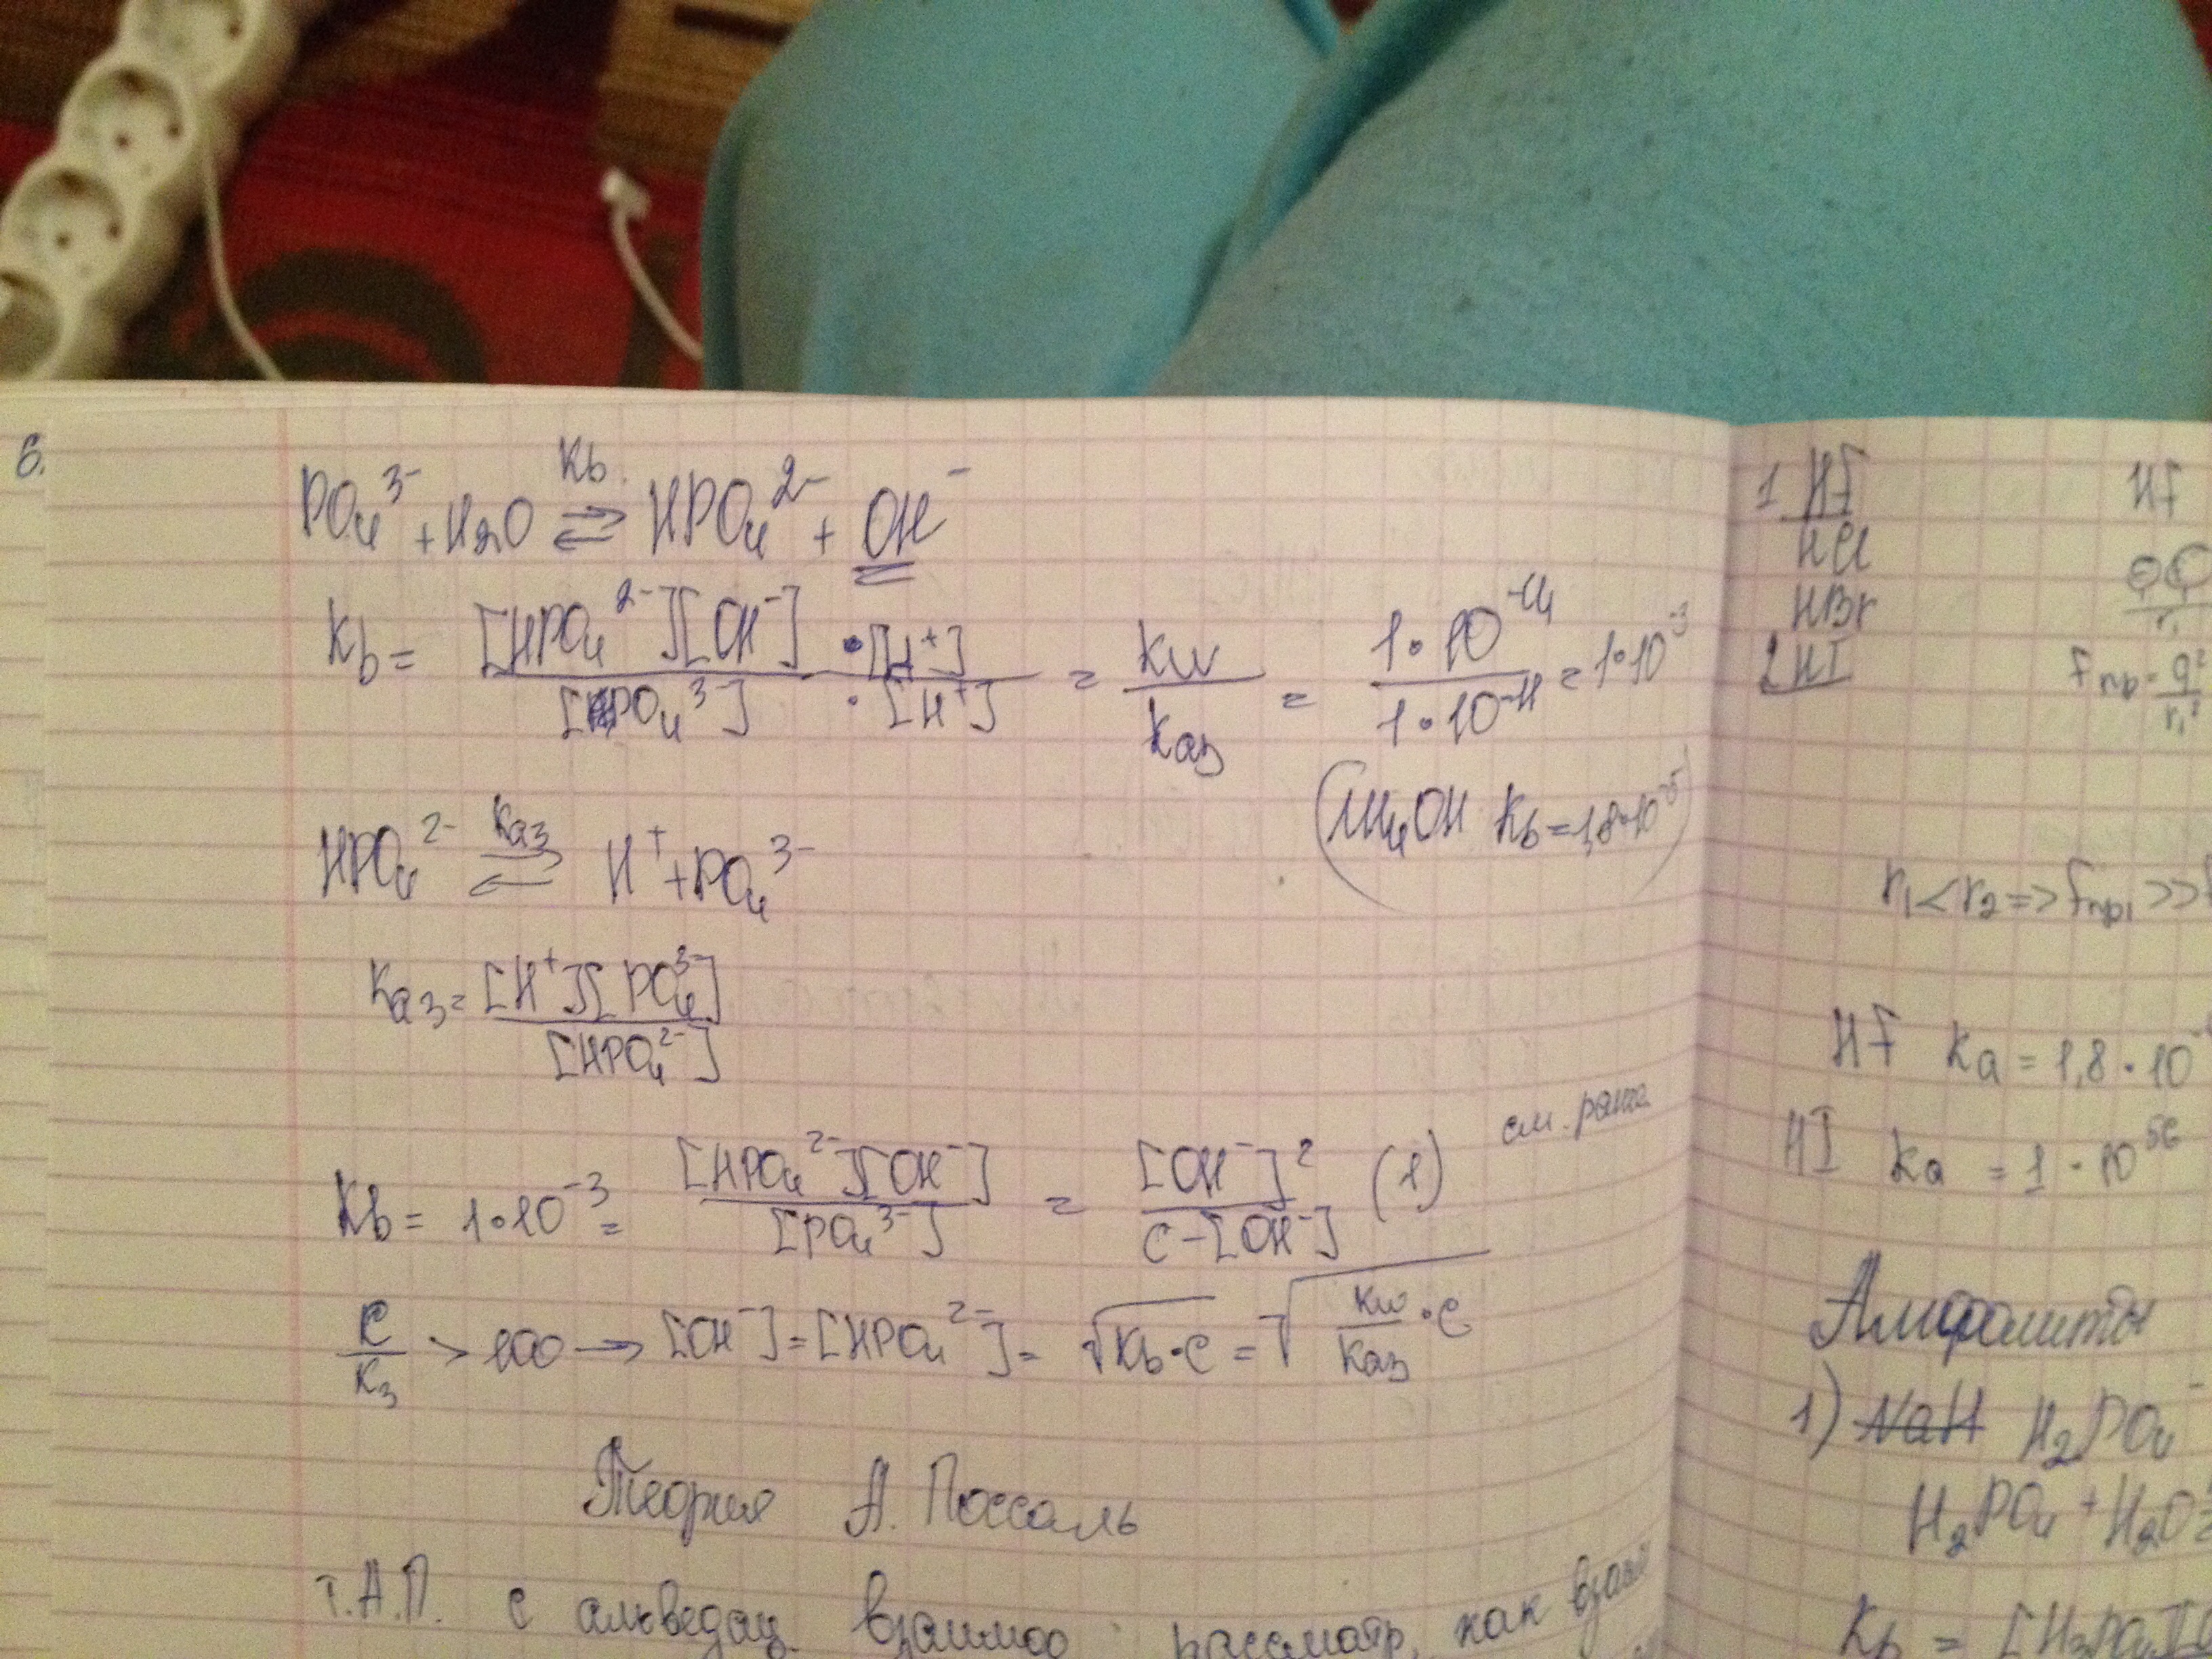 6.
PO₄³⁻ + H₂O ⇄ HPO₄²⁻ + OH⁻
Kb
Kb = [HPO₄²⁻][OH⁻] · [H⁺] / [PO₄³⁻] · [H⁺] = Kw / Ka₃ = 1·10⁻¹⁴ / 1·10⁻¹¹ = 1·10⁻³
(NH₄OH Kb = 1,8·10⁻⁵)
HPO₄²⁻ ⇄ H⁺ + PO₄³⁻
Ka₃
Ka₃ = [H⁺][PO₄³⁻] / [HPO₄²⁻]
Kb = 1·10⁻³ = [HPO₄²⁻][OH⁻] / [PO₄³⁻] = [OH⁻]² / C-[OH⁻] (1) см.
C / K₃ > 100 → [OH⁻] = [HPO₄²⁻] = √Kb·C = √Kw / Ka₃ · C
Теория А.
Т.А.П. с рассматр. как
1 HF
HCl
HBr
2 HI
HF
Fпр = q² / r₁²
r₁ < r₂ => Fпр₁ >>
HF Ka = 1,8 · 10
HI Ka = 1 · 10
Амфолиты
1) NaH H₂PO₄⁻
H₂PO₄⁻ + H₂O
Kb = [H₃PO₄]